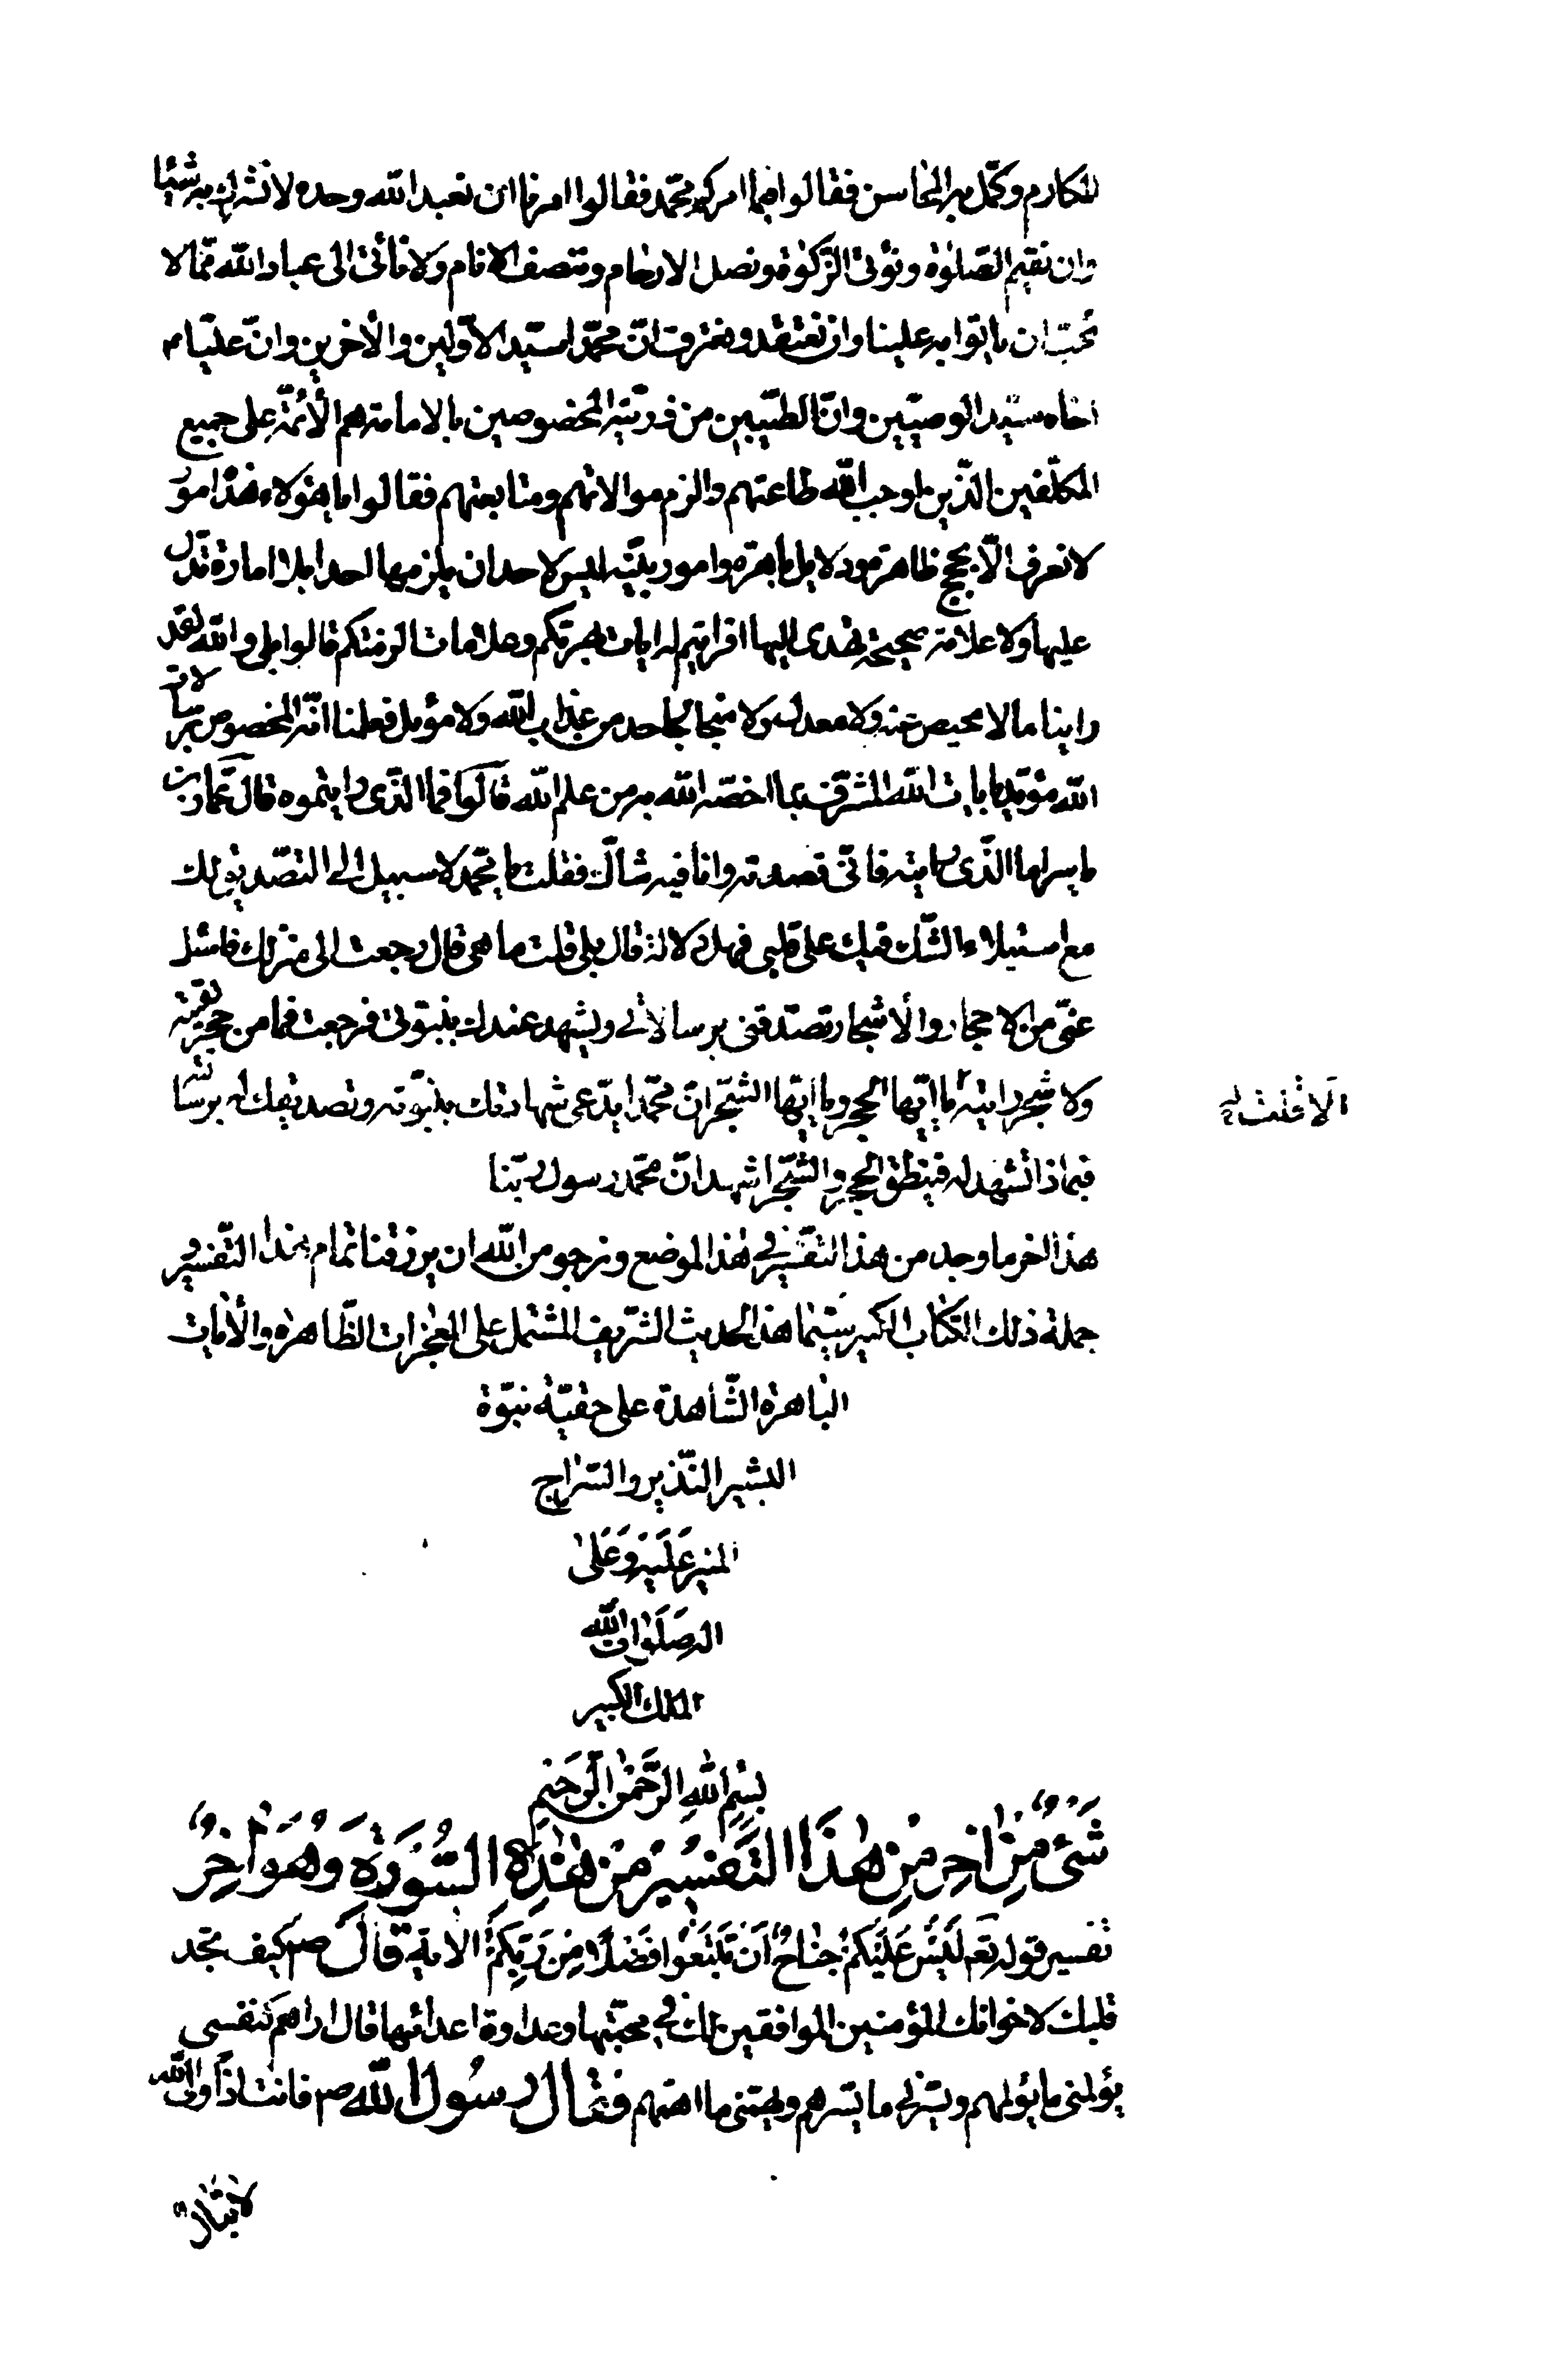 المكارم وكمّل به المحاسن فقالوا فبما امركم محمّد فقالوا امرنا ان نعبد الله وحده لا نشرك به شيئا
وان نقيم الصّلوة ونؤتى الزّكوة ونصل الارحام وننصف الانام ولا نأتى الى عباد الله بما لا
نحبّ ان ياتوا به علينا وان نعتقد ونعترف انّ محمّدا سيّد الاوّلين والأخرين وانّ عليّا ع
اخاه سيّد الوصيّين وانّ الطيّبين من ذريّته المخصوصين بالامامة هم الأئمّة على جميع
المكلّفين الذّين اوجب الله طاعتهم والزم موالاتهم ومتابعتهم فقالوا يا هؤلاء هذا امور
لا تعرف الّا بحجج ظاهرة ودلايل باهرة وامور بيّنة ليس لاحد ان يلزمها احدا بلا امارة تدلّ
عليها ولا علامة صحيحة تهدى اليها افرايتم له ايات بهرتكم وعلامات الزمتكم قالوا بلى والله لقد
راينا ما لا محيص عنه ولا معدل ولا منجا لجاحده من عذاب الله ولا مؤيل فعلمنا انّه المخصوص برسالات
الله مؤيّد بايات الله المشرّف بما اختصّه الله به من علم الله قالوا فما الذّى رايتموه قال عمّار بن
ياسر اما الذّى رايته فانّى قصدته وانا فيه شاكّ فقلت يا محمّد لا سبيل الى التصّديق لك
مع استيلاء الشّك فيك على قلبى فهل دلالة قال بلى قلت ما هى قال رجعت الى منزلك فاسئل
عنّى من الاحجار والأشجار تصدّقنى برسالاتى ويشهد عندك بنبوّتى فرجعت فما من حجر لقيته
ولا شجر رايته ياايّها الحجر ويا ايّها الشّجر انّ محمّدا يدّعى شهادتك بنبوّته وتصديقك له برسالته
الّا ناديته
فبماذا تشهد له فينطق الحجر والشّجر اشهد انّ محمّد رسول ربّنا
هذا اخر ما وجد من هذا التفّسير فى هذا الموضع ونرجو من الله ان يرزقنا تمام هذا التّفسير و
جملة ذلك الكتاب الكبير سيّما هذا الحديث الشّريف المشتمل على المعجزات الظّاهرة والأيات
الباهرة الشّاهدة على حقيّة نبوّة
البشير النّذير والسّراج
المنير عَلَيْه وَعَلى
اله صَلَوات الله
الملك الكبير
بِسْمِ اللهِ الرَّحْمٰنِ الرَّحيم
شَىْءٌ اخر مِنْ هٰذَا التَّفْسيْر مِنْ هٰذِهِ السُّوْرَةِ وَهُوَ اٰخِرُ
تفسير قوله تعم لَيْسَ عَلَيْكُمْ جُناحٌ اَنْ تَبْتَغُوا فَضْلًا مِنْ رَبِّكُمْ الاية قال ص كيف تجد
قلبك لاخوانك المؤمنين الموافقين لك فى محبّتها وعداوة اعدائها قال اراهم كنفسى
يؤلمنى ما يؤلمهم ويسّرنى ما يسّرهم ويهمّنى ما اهمّهم فقال رسُول الله ص فانت اذًا ولىّ الله
لا تبال